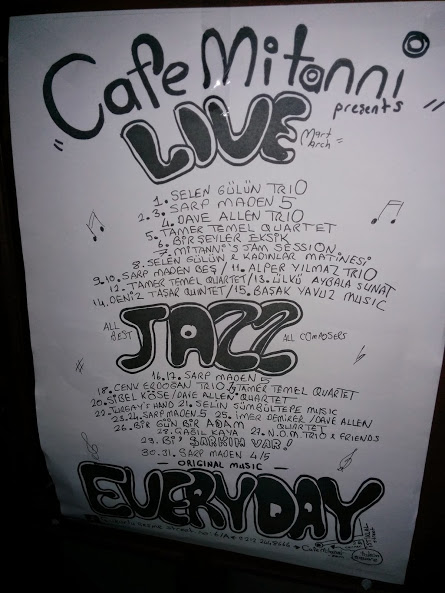 Cafe Mitanni
presents
"LIVE"
Mart
March =
1. SELEN GÜLÜN TRIO
2.3. SARP MADEN 5
4. DAVE ALLEN TRIO
5. TAMER TEMEL QUARTET
6. BİRŞEYLER EKSİK
7. MITANNI'S JAM SESSION
8. SELEN GÜLÜN & KADINLAR MATİNESİ
9.10. SARP MADEN BEŞ / 11. ALPER YILMAZ TRIO
12. TAMER TEMEL QUARTET / 13. ÜLKÜ AYBALA SUNAT
14. DENİZ TAŞAR QUINTET / 15. BAŞAK YAVUZ MUSIC
ALL
BEST
JAZZ
ALL COMPOSERS
16.17. SARP MADEN 5
18. CENK ERDOĞAN TRIO 19. TAMER TEMEL QUARTET
20. SİBEL KÖSE / DAVE ALLEN QUARTET
22. TURGAY'S HAND 21. SELİN SÜMBÜLTEPE MUSIC
23.24. SARP MADEN 5 25. İMER DEMİRER / DAVE ALLEN
QUARTET
26. BİR GÜN BİR ADAM
28. ÇAĞIL KAYA 27. N.O.M. TRIO & FRIENDS
29. Bİ' ŞARKIM VAR!
30.31. SARP MADEN 4/5
— ORIGINAL MUSIC —
EVERYDAY
street no: 6/A
Cafe Mitanni